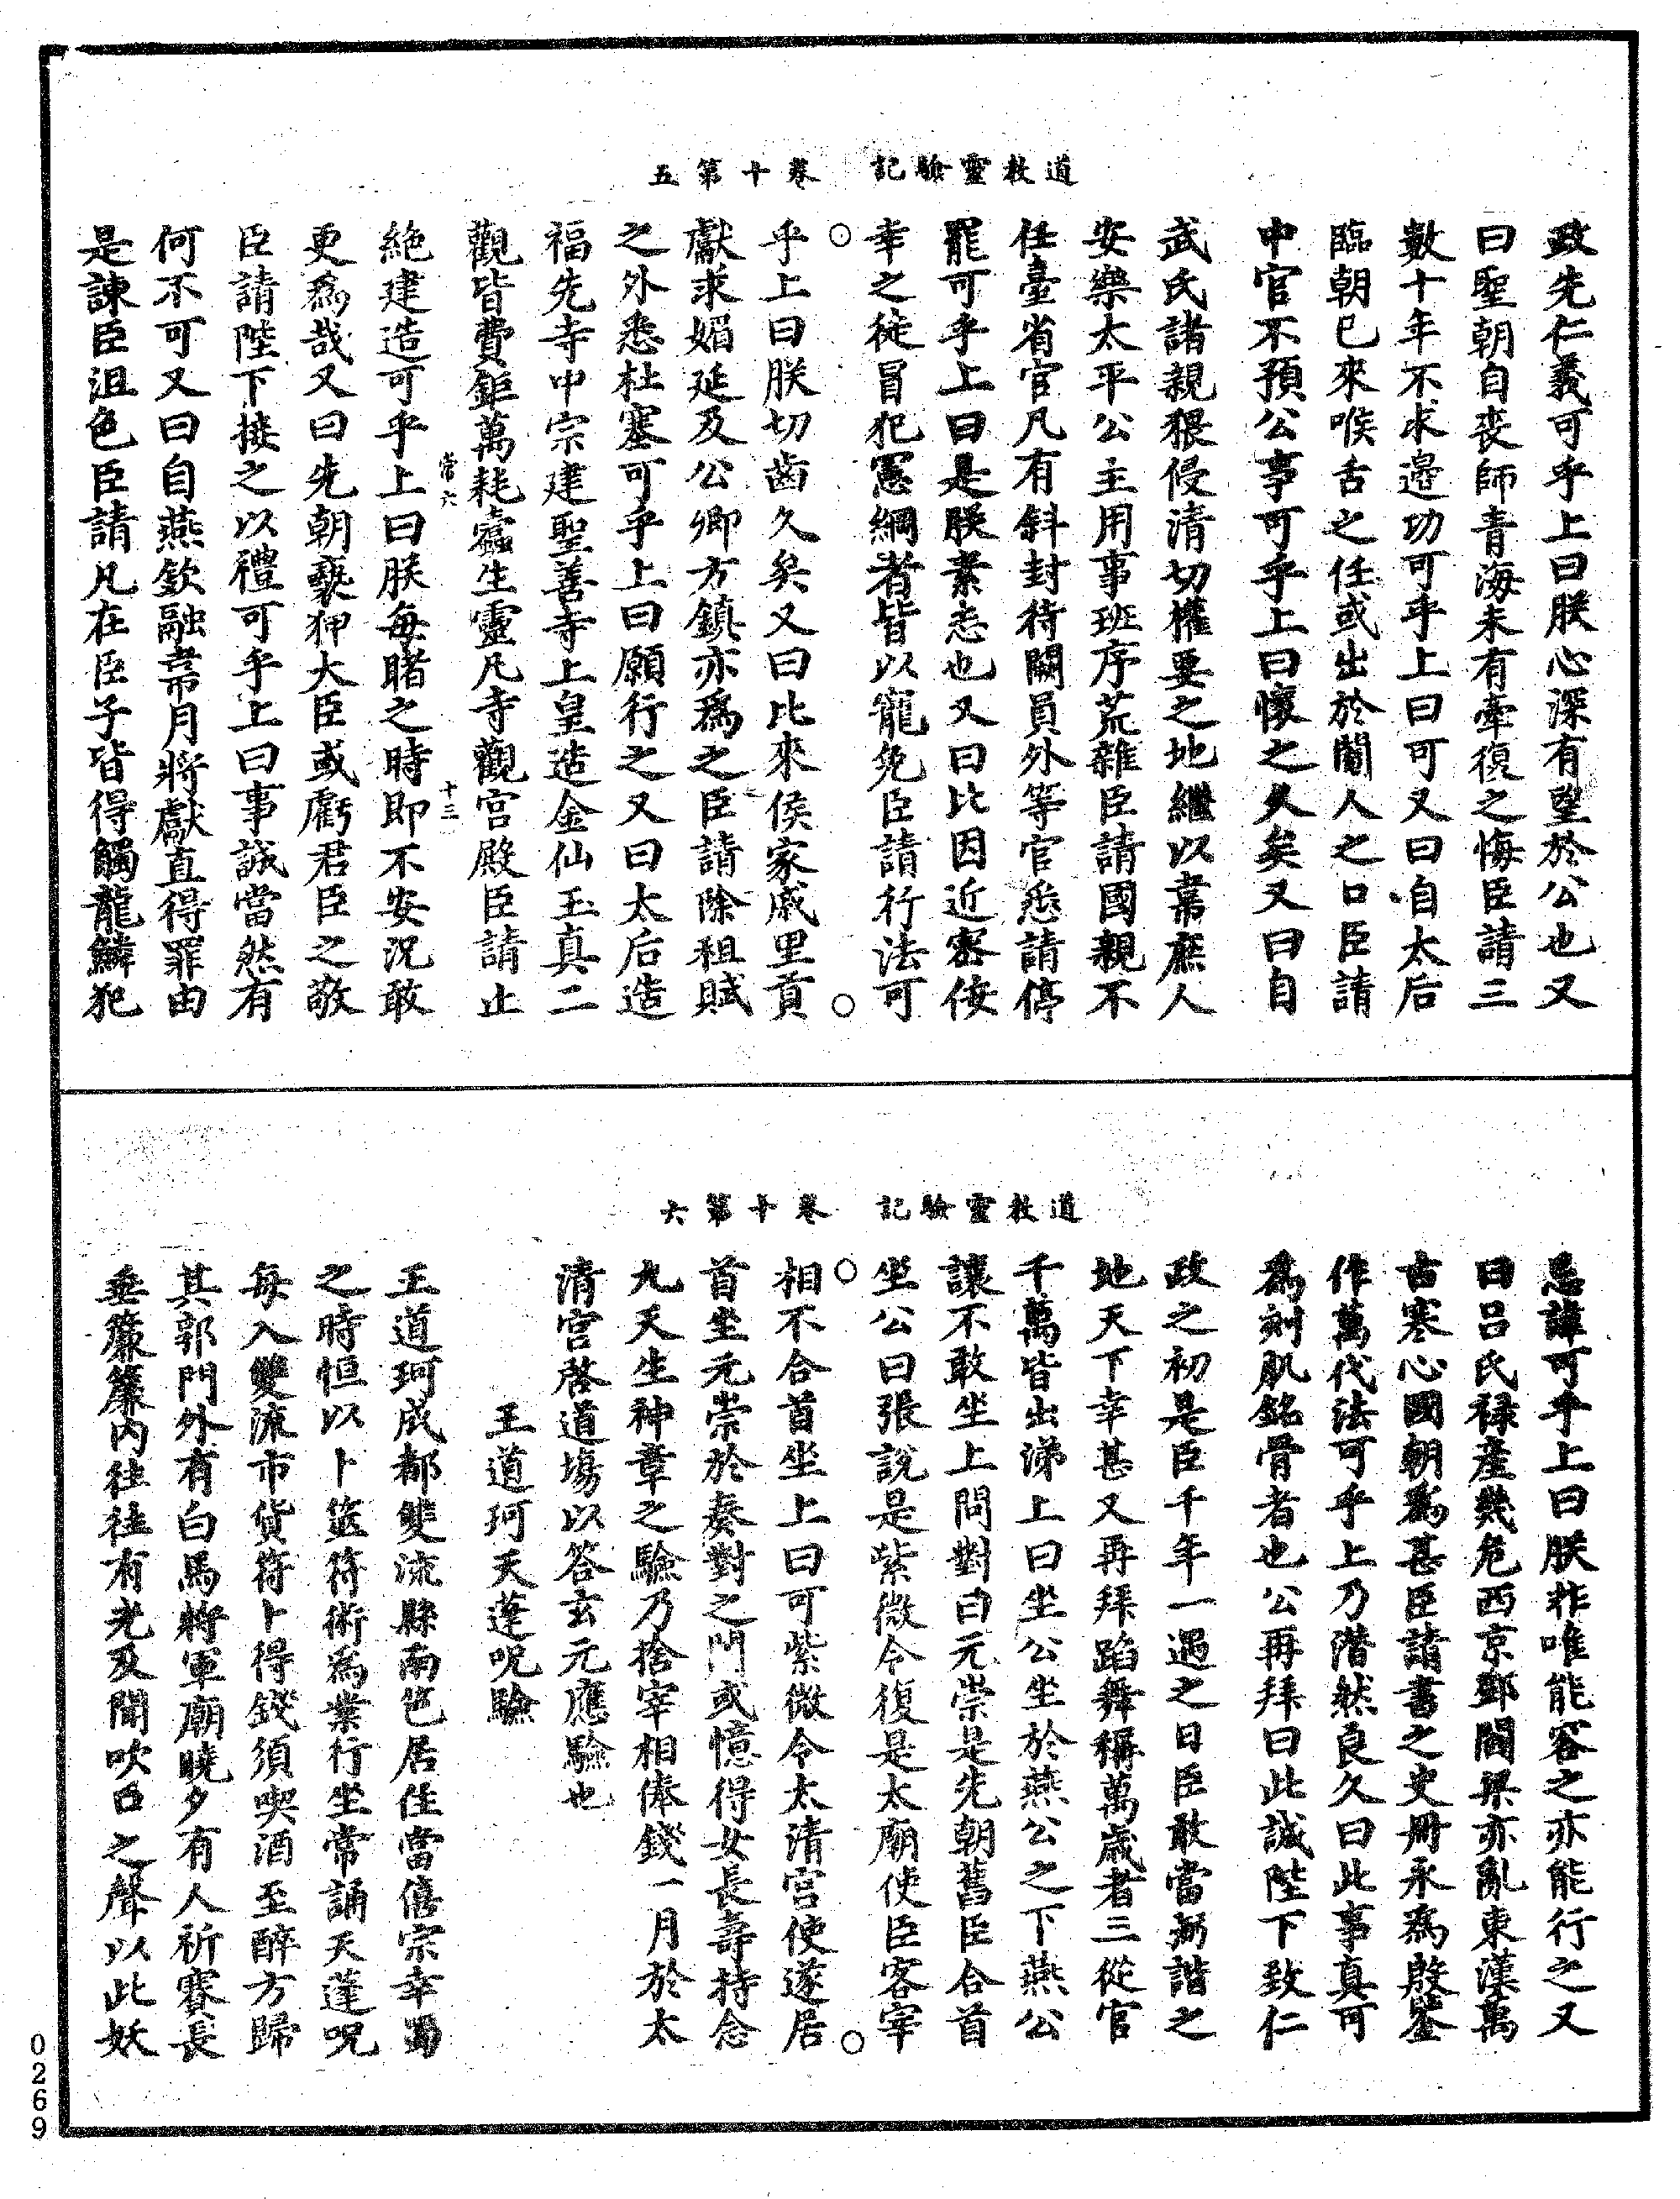 道教靈驗記　卷十第五
政先仁義可乎上曰朕心深有望於公也又
曰聖朝自喪師青海未有牽復之悔臣請三
數十年不求邊功可乎上曰可又曰自太后
臨朝已來喉舌之任或出於閹人之口臣請
中官不預公事可乎上曰懷之久矣又曰自
武氏諸親猥侵清切權要之地繼以韋庶人
安樂太平公主用事班序荒雜臣請國親不
任臺省官凡有斜封待闕員外等官悉請停
罷可乎上曰是朕素志也又曰比因近密佞
幸之徒冒犯憲綱者皆以寵免臣請行法可
乎上曰朕切齒久矣又曰比來侯家戚里貢
獻求媚延及公卿方鎮亦為之臣請除租賦
之外悉杜塞可乎上曰願行之又曰太后造
福先寺中宗建聖善寺上皇造金仙玉真二
觀皆費鉅萬耗蠹生靈凡寺觀宮殿臣請止
常六　十三
絕建造可乎上曰朕每睹之時即不安況敢
更為哉又曰先朝褻狎大臣或虧君臣之敬
臣請陛下接之以禮可乎上曰事誠當然有
何不可又曰自燕欽融韋月將獻直得罪由
是諫臣沮色臣請凡在臣子皆得觸龍鱗犯
道教靈驗記　卷十第六
忌諱可乎上曰朕非唯能容之亦能行之又
曰呂氏祿產幾危西京鄧閻梁亦亂東漢萬
古寒心國朝為甚臣請書之史冊永為殷鑒
作萬代法可乎上乃潛然良久曰此事真可
為刻肌銘骨者也公再拜曰此誠陛下致仁
政之初是臣千年一遇之日臣敢當弼諧之
地天下幸甚又再拜蹈舞稱萬歲者三從官
千萬皆出涕上曰坐公坐於燕公之下燕公
讓不敢坐上問對曰元崇是先朝舊臣合首
坐公曰張說是紫微令復是太廟使臣客宰
相不合首坐上曰可紫微令太清宮使遂居
首坐元崇於奏對之門或憶得女長壽持念
九天生神章之驗乃捨宰相俸錢一月於太
清宮啓道場以答玄元應驗也
王道珂天蓬呪驗
王道珂成都雙流縣南笆居住當僖宗幸蜀
之時恒以卜筮符術為業行坐常誦天蓬呪
每入雙流市貨符卜得錢須喫酒至醉方歸
其郭門外有白馬將軍廟曉夕有人祈賽長
垂簾簾內往往有光及聞吹口之聲以此妖
0269